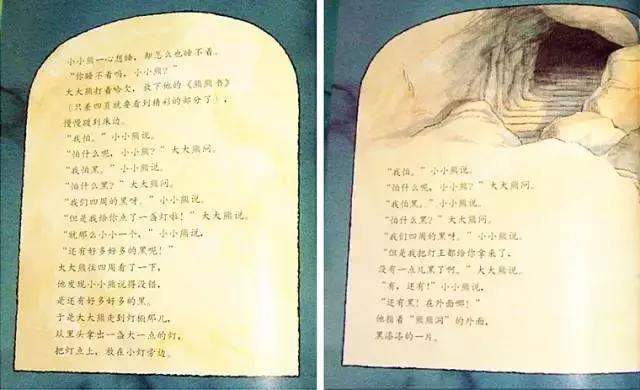 小小熊一心想睡，却怎么也睡不着。
“你睡不着吗，小小熊？”
大大熊打着哈欠，放下他的《熊熊书》
（只差四页就要看到精彩的部分了），
慢慢踱到床边。
“我怕。”小小熊说。
“怕什么呢，小小熊？”大大熊问。
“我怕黑。”小小熊说。
“怕什么黑？”大大熊问。
“我们四周的黑呀。”小小熊说。
“但是我给你点了一盏灯啦！”大大熊说。
“就那么小小一个，”小小熊说，
“还有好多好多的黑呢！”
大大熊往四周看了一下，
他发现小小熊说得没错，
是还有好多好多的黑。
于是大大熊走到灯橱那儿，
从里头拿出一盏大一点的灯，
把灯点上，放在小灯旁边。
“我怕。”小小熊说。
“怕什么呢，小小熊？”大大熊问。
“我怕黑。”小小熊说。
“怕什么黑？”大大熊问。
“我们四周的黑呀。”小小熊说。
“但是我把灯王都给你拿来了，
没有一点儿黑了啊。”大大熊说。
“有，还有！”小小熊说，
“还有黑！在外面哪！”
他指着“熊熊洞”的外面，
黑漆漆的一片。